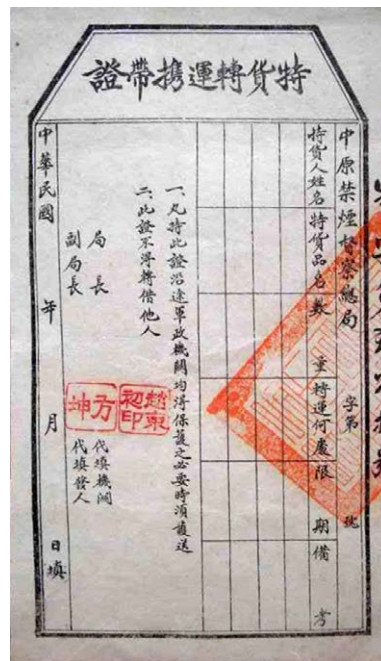 特貨轉運携帶證
中原禁煙督察總局 字第 號
持貨人姓名 特貨品名 數量 轉運何處 限期 備考
一、凡持此證沿途軍政機關均得保護之必要時須護送
二、此證不得轉借他人
局長
趙東初印
副局長
方坤
代填機關
代填發人
中華民國 年 月 日填